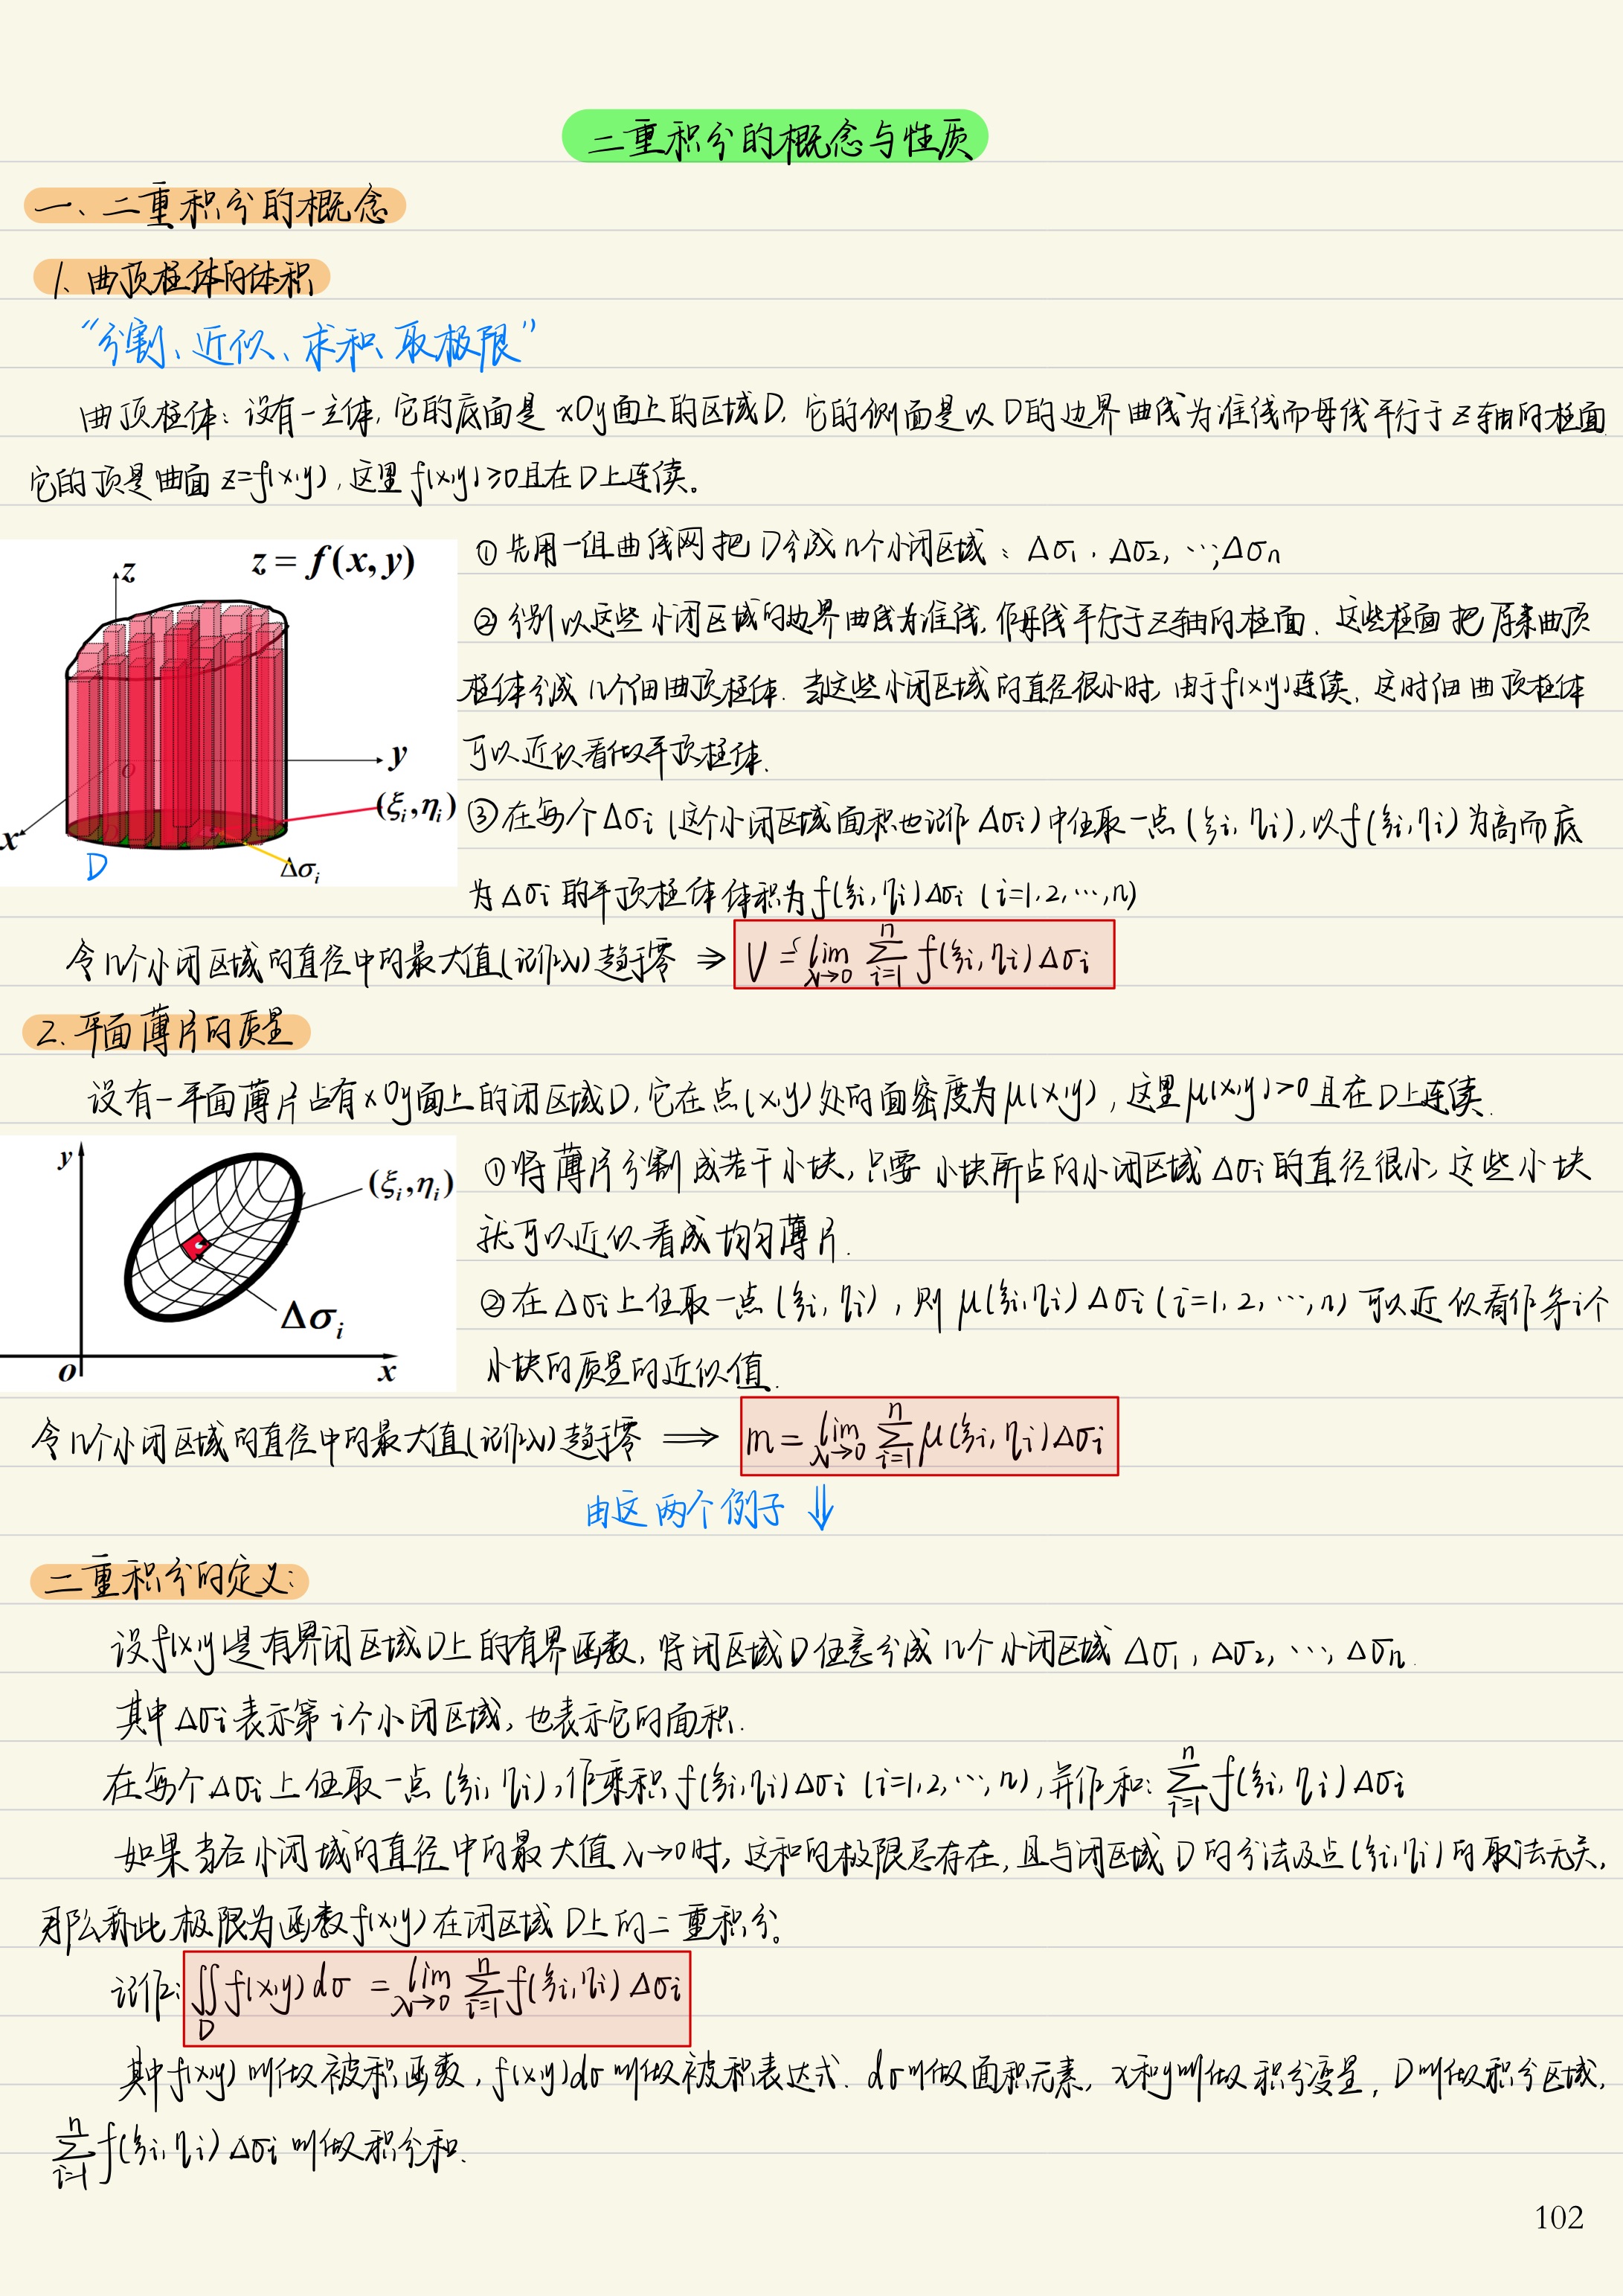 二重积分的概念与性质
一、二重积分的概念
1. 曲顶柱体的体积
“分割、近似、求和、取极限”
曲顶柱体：设有一立体, 它的底面是 xOy面上的区域D, 它的侧面是以 D的边界曲线为准线而母线平行于 z轴的柱面,
它的顶是曲面 z=f(x,y), 这里 f(x,y)≥0且在D上连续。
z = f(x, y)
z
y
x
O
D
(ξᵢ,ηᵢ)
Δσᵢ
① 先用一组曲线网把 D分成 n个小闭区域：Δσ₁, Δσ₂, …, Δσₙ
② 分别以这些小闭区域的边界曲线为准线, 作母线平行于z轴的柱面, 这些柱面把原来曲顶
柱体分成 n个细曲顶柱体. 当这些小闭区域的直径很小时, 由于f(x,y)连续, 这时细曲顶柱体
可以近似看做平顶柱体.
③ 在每个Δσᵢ (这个小闭区域面积也记作 Δσᵢ) 中任取一点 (ξᵢ, ηᵢ), 以f(ξᵢ, ηᵢ) 为高而底
为 Δσᵢ 的平顶柱体体积为f(ξᵢ, ηᵢ)Δσᵢ (i=1,2,…,n)
令n个小闭区域的直径中的最大值(记作λ)趋于零 ⇒ V = lim_{λ→0} ∑_{i=1}^{n} f(ξᵢ, ηᵢ)Δσᵢ
2. 平面薄片的质量
设有一平面薄片占有 xOy面上的闭区域D, 它在点(x,y)处的面密度为μ(x,y), 这里μ(x,y)>0且在D上连续.
y
x
o
(ξᵢ,ηᵢ)
Δσᵢ
① 将薄片分割成若干小块, 只要小块所占的小闭区域 Δσᵢ的直径很小, 这些小块
就可以近似看成均匀薄片.
② 在 Δσᵢ上任取一点 (ξᵢ, ηᵢ), 则 μ(ξᵢ,ηᵢ)Δσᵢ (i=1, 2, …, n) 可以近似看作第i个
小块的质量的近似值.
令n个小闭区域的直径中的最大值(记作λ)趋于零 ⟹ m = lim_{λ→0} ∑_{i=1}^{n} μ(ξᵢ, ηᵢ)Δσᵢ
由这两个例子 ⇓
二重积分的定义:
设f(x,y)是有界闭区域D上的有界函数, 将闭区域D任意分成 n个小闭区域 Δσ₁, Δσ₂, …, Δσₙ.
其中 Δσᵢ表示第 i个小闭区域, 也表示它的面积.
在每个Δσᵢ上任取一点 (ξᵢ, ηᵢ), 作乘积 f(ξᵢ,ηᵢ)Δσᵢ (i=1,2,…,n), 并作和: ∑_{i=1}^{n} f(ξᵢ, ηᵢ)Δσᵢ
如果当各小闭域的直径中的最大值 λ→0时, 这和的极限总存在, 且与闭区域 D的分法及点(ξᵢ,ηᵢ)的取法无关,
那么称此极限为函数f(x,y)在闭区域 D上的二重积分。
记作: ∬_D f(x,y)dσ = lim_{λ→0} ∑_{i=1}^{n} f(ξᵢ,ηᵢ)Δσᵢ
其中f(x,y)叫做被积函数, f(x,y)dσ叫做被积表达式. dσ叫做面积元素, x和y叫做积分变量, D叫做积分区域,
∑_{i=1}^{n} f(ξᵢ,ηᵢ)Δσᵢ 叫做积分和.
102